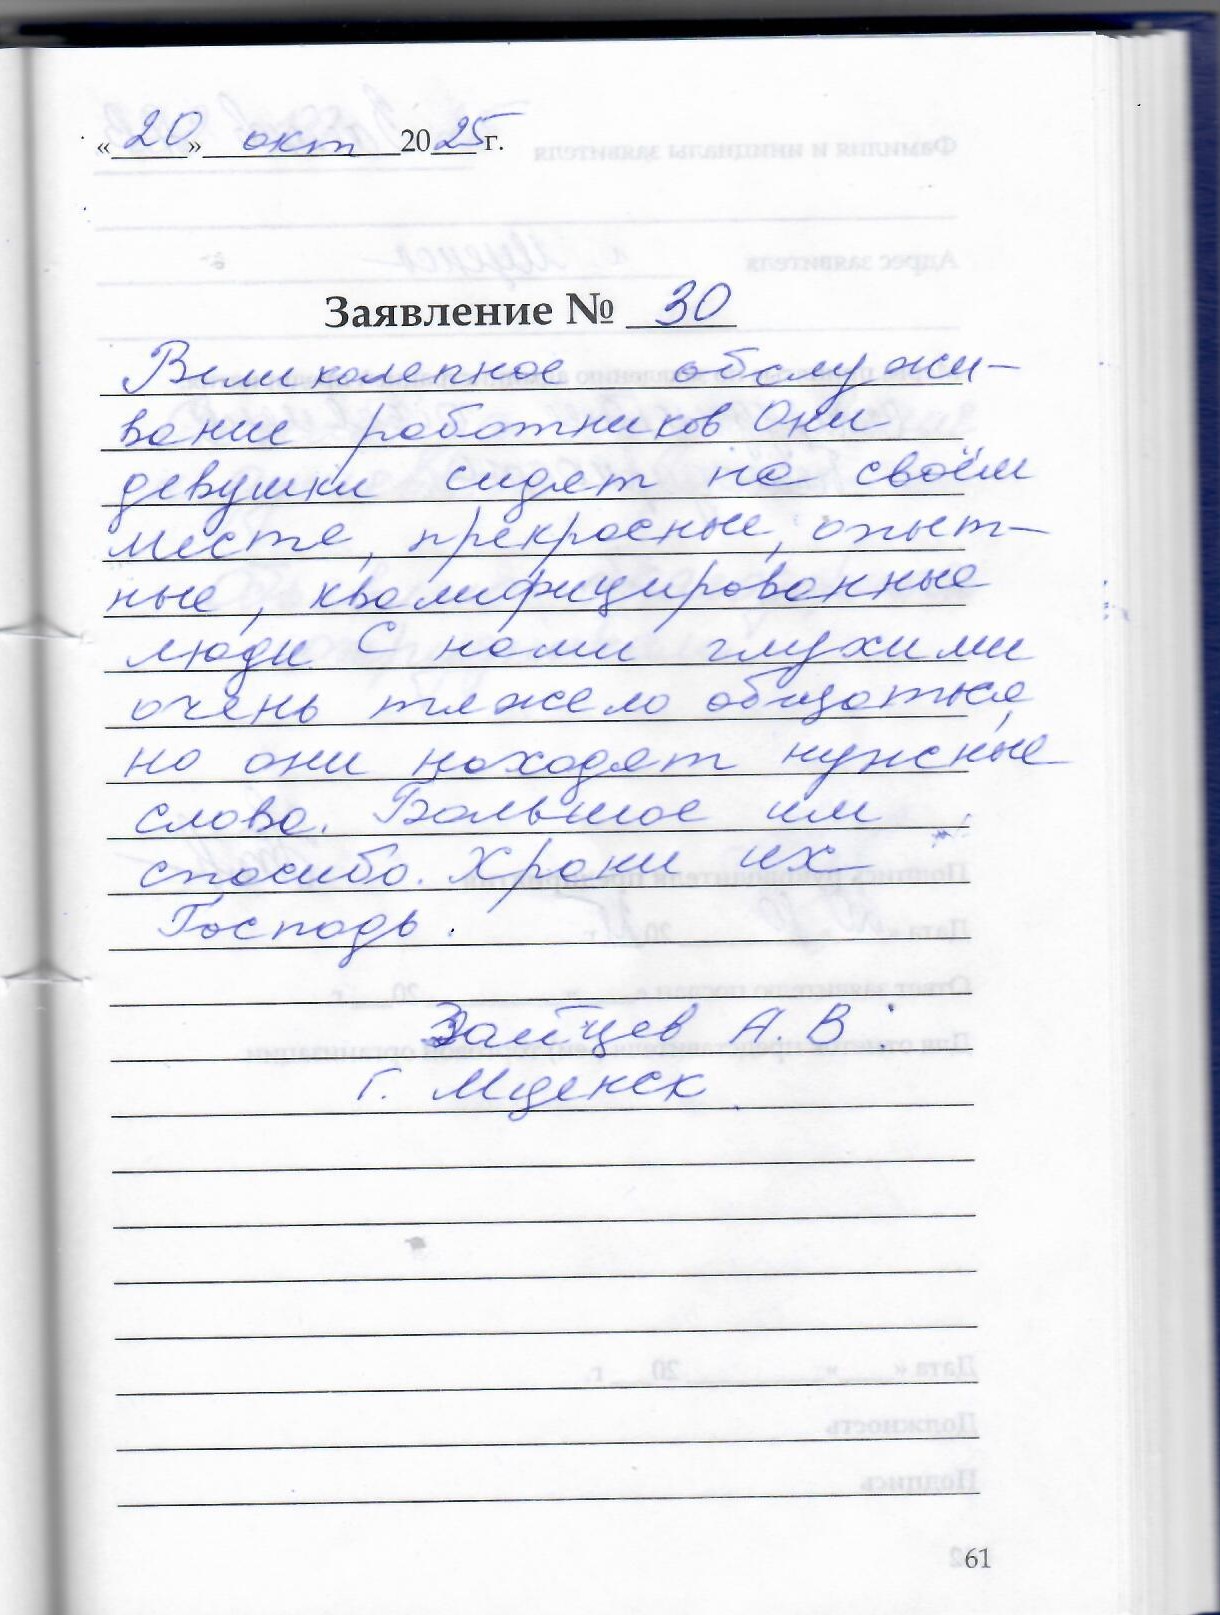 «20» окт 2025 г.
Заявление № 30
Великолепное обслужи-
вание работников Они
девушки сидят на своём
месте, прекрасные, опыт-
ные, квалифицированные
люди. С нами глухими
очень тяжело общаться,
но они находят нужные
слова. Большое им
спасибо. Храни их
Господь.
Зайцев А. В.
г. Мценск
61